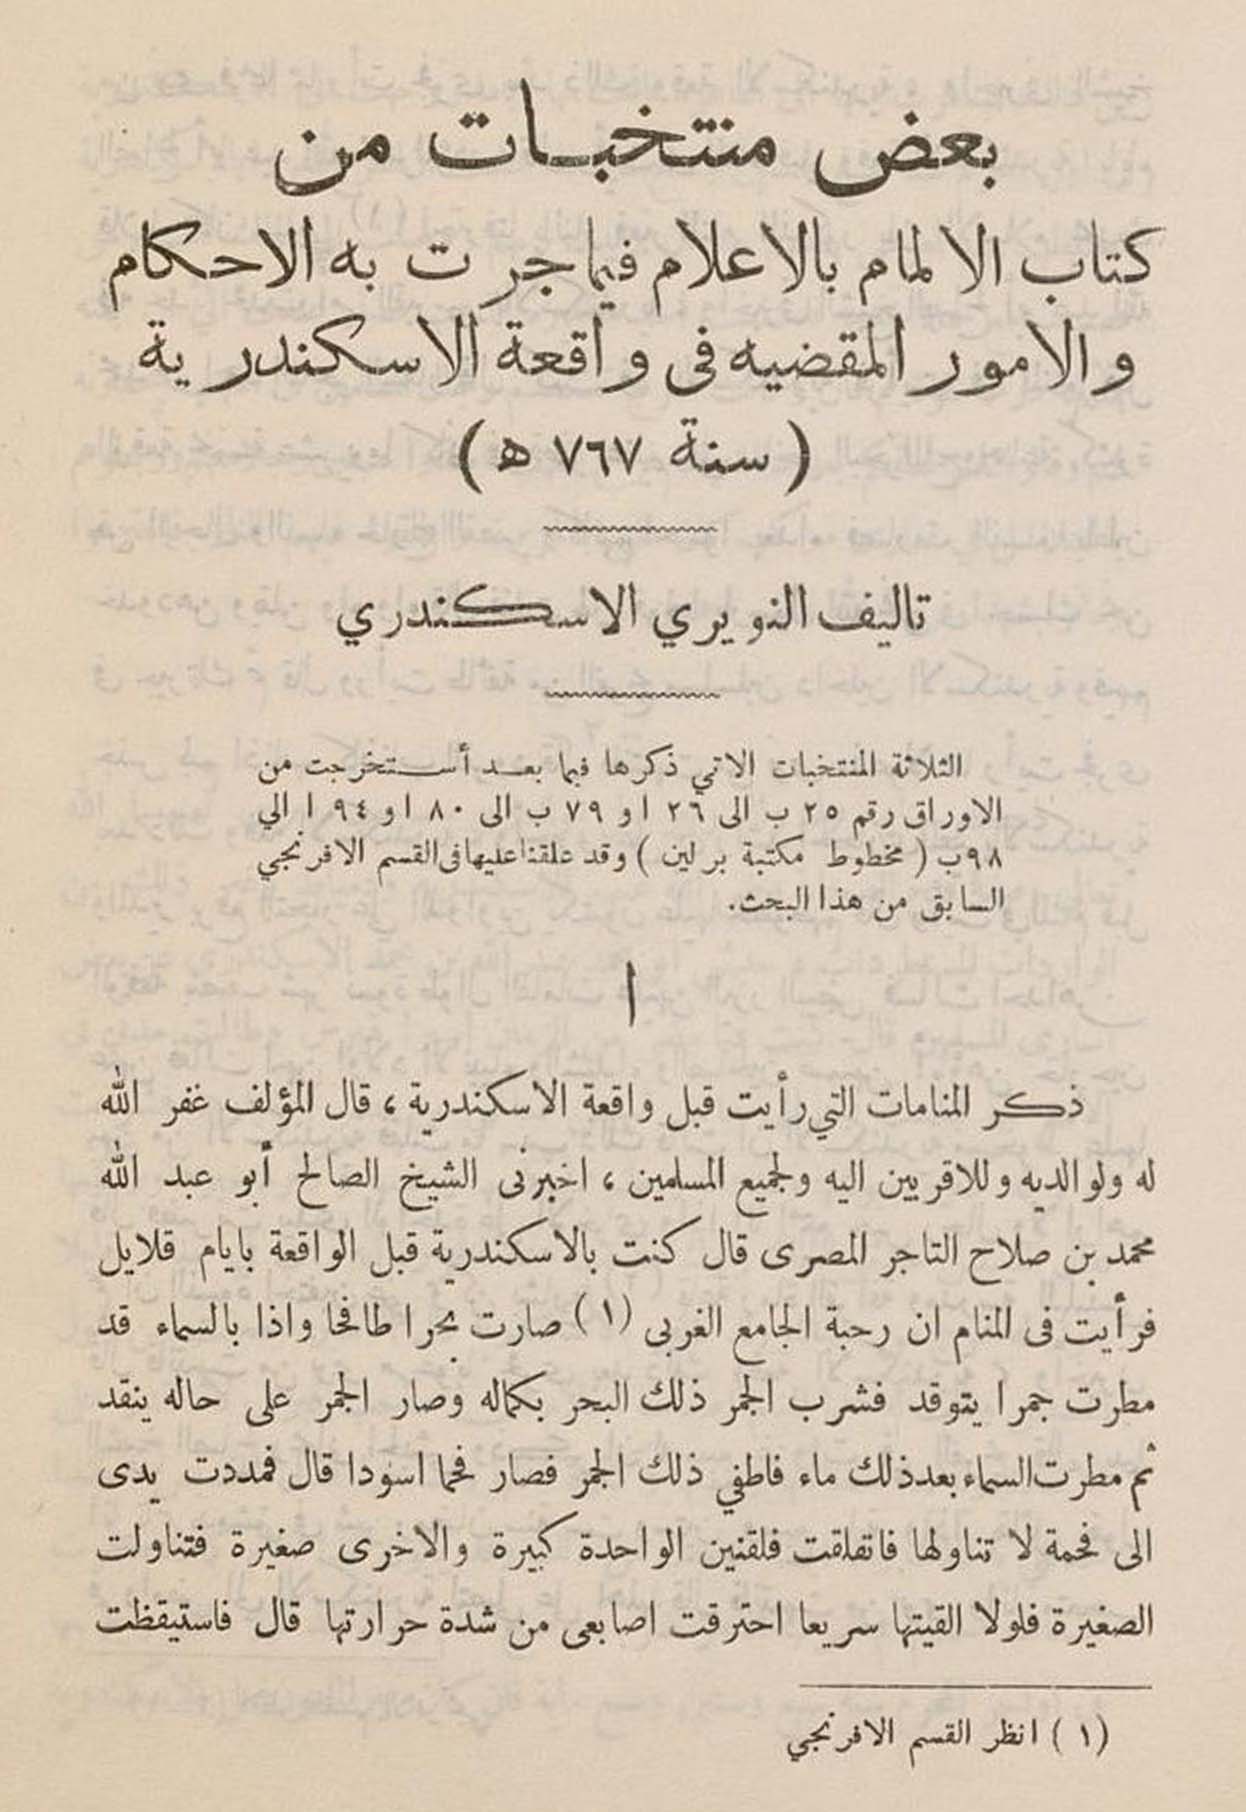 بعض منتخبات من
كتاب الالمام بالاعلام فيما جرت به الاحكام
والامور المقضيه فى واقعة الاسكندرية
(سنة ٧٦٧ ه)
تاليف النويري الاسكندري
الثلاثة المنتخبات الاتي ذكرها فيما بعد أستخرجت من
الاوراق رقم ٢٥ ب الى ٢٦ ا و ٧٩ ب الى ٨٠ ا و ٩٤ ا الي
٩٨ب (مخطوط مكتبة برلين) وقد علقنا عليها فى القسم الافرنجي
السابق من هذا البحث.
ا
ذكر المنامات التي رأيت قبل واقعة الاسكندرية ، قال المؤلف غفر الله
له ولوالديه وللاقربين اليه ولجميع المسلمين ، اخبرنى الشيخ الصالح أبو عبد الله
محمد بن صلاح التاجر المصرى قال كنت بالاسكندرية قبل الواقعة بايام قلايل
فرأيت فى المنام ان رحبة الجامع الغربى (١) صارت بحرا طافحا واذا بالسماء قد
مطرت جمرا يتوقد فشرب الجمر ذلك البحر بكماله وصار الجمر على حاله ينقد
ثم مطرت السماء بعد ذلك ماء فاطفي ذلك الجمر فصار فحما اسودا قال فمددت يدى
الى فحمة لا تناولها فانفلقت فلقنين الواحدة كبيرة والاخرى صغيرة فتناولت
الصغيرة فلولا القيتها سريعا احترقت اصابعى من شدة حرارتها قال فاستيقظت
(١) انظر القسم الافرنجي